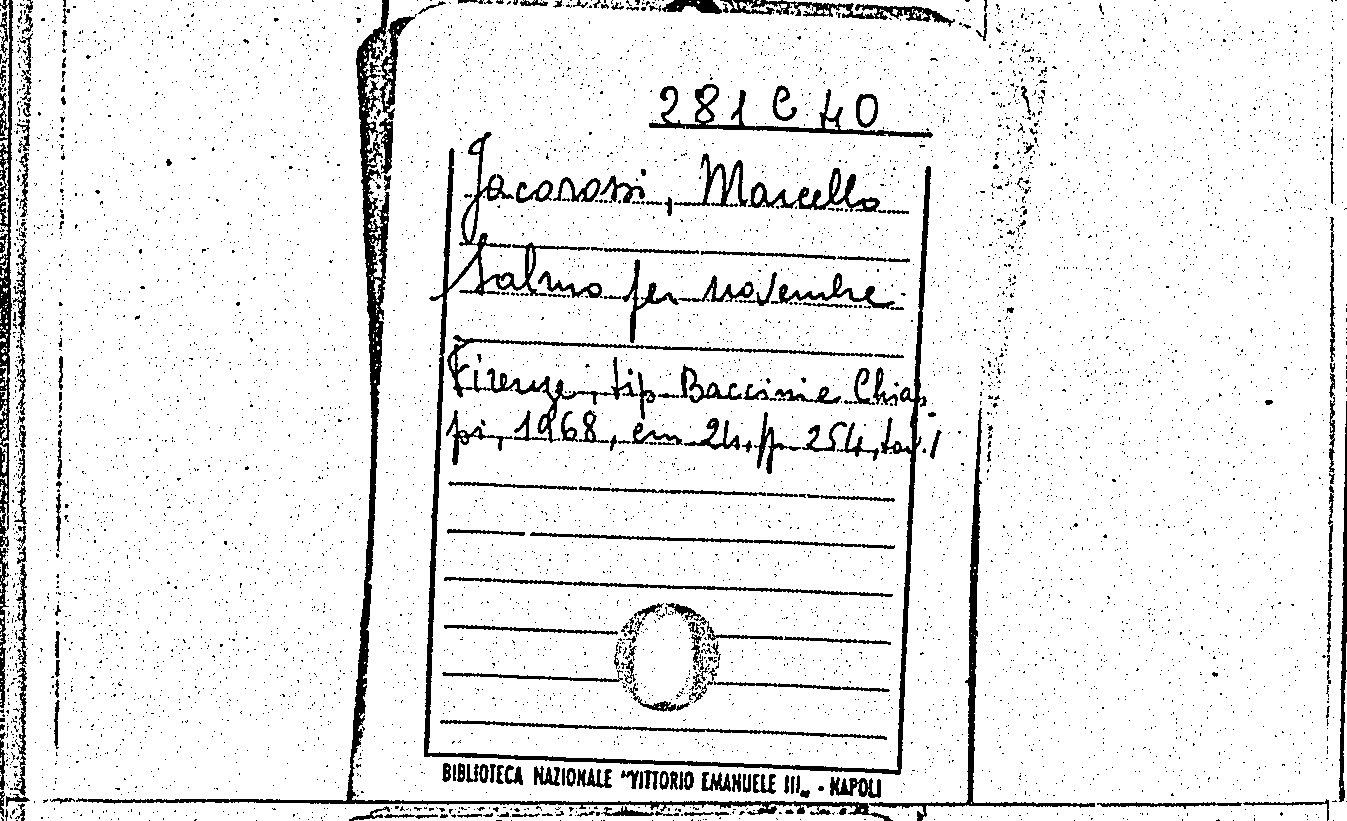 281 C 40
Jacorossi, Marcello
Salmo per novembre.
Firenze, tip. Baccini e Chiap-
pi, 1968, cm 24, pp 254, tav. 1
BIBLIOTECA NAZIONALE "VITTORIO EMANUELE III„ - NAPOLI